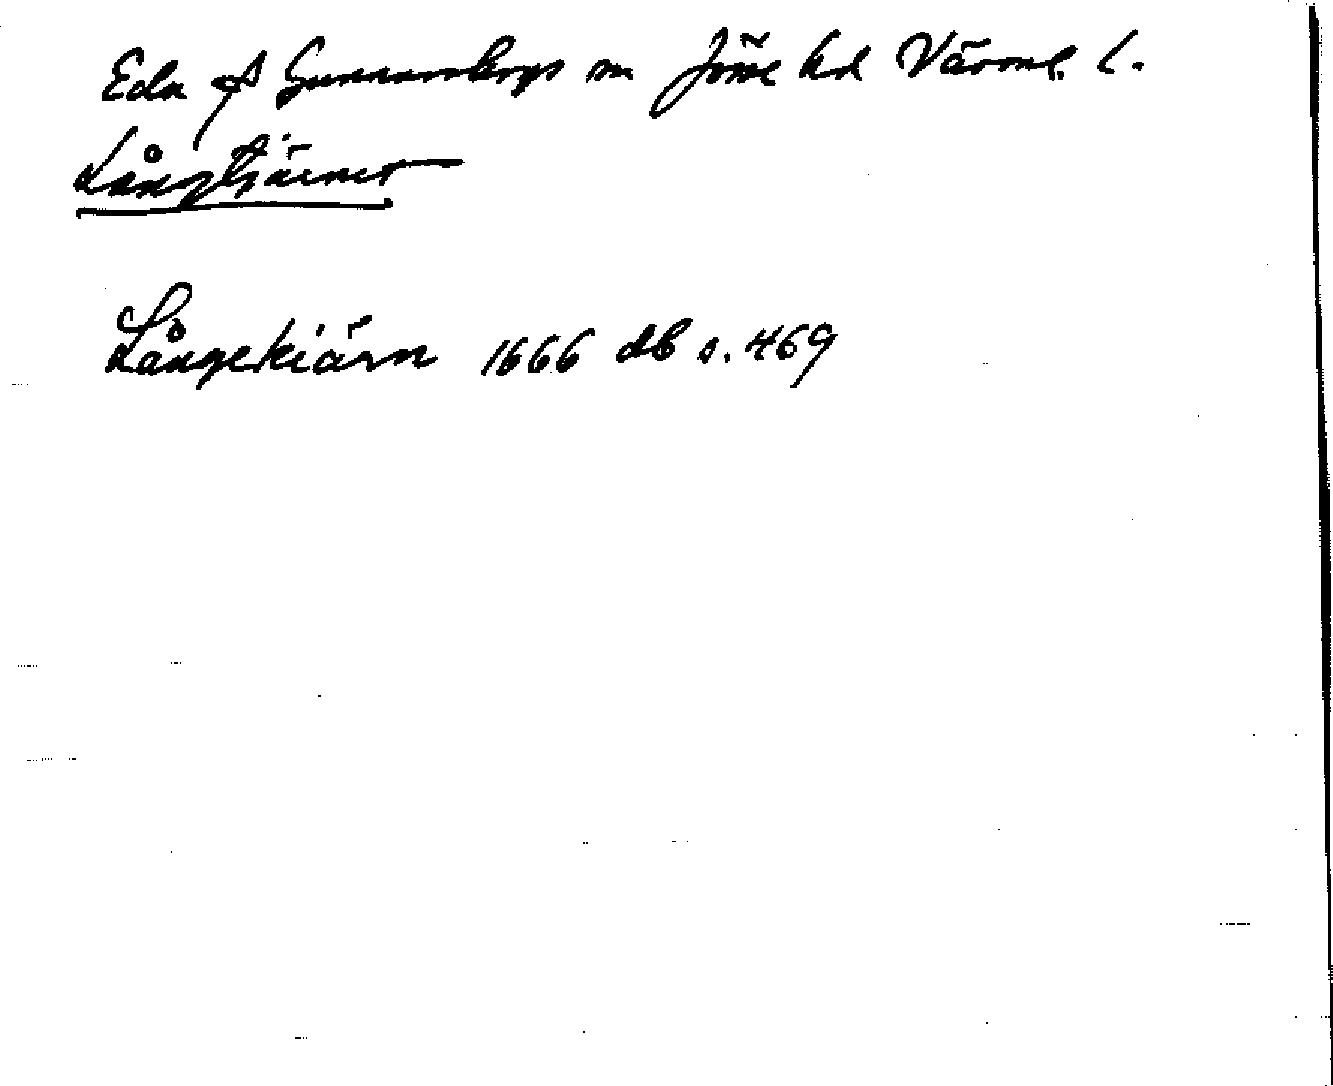 Eda f Gunnarskogs sn Jösse hd Värml. l.
Långtjärnet
Långekiärn 1666 db s. 469